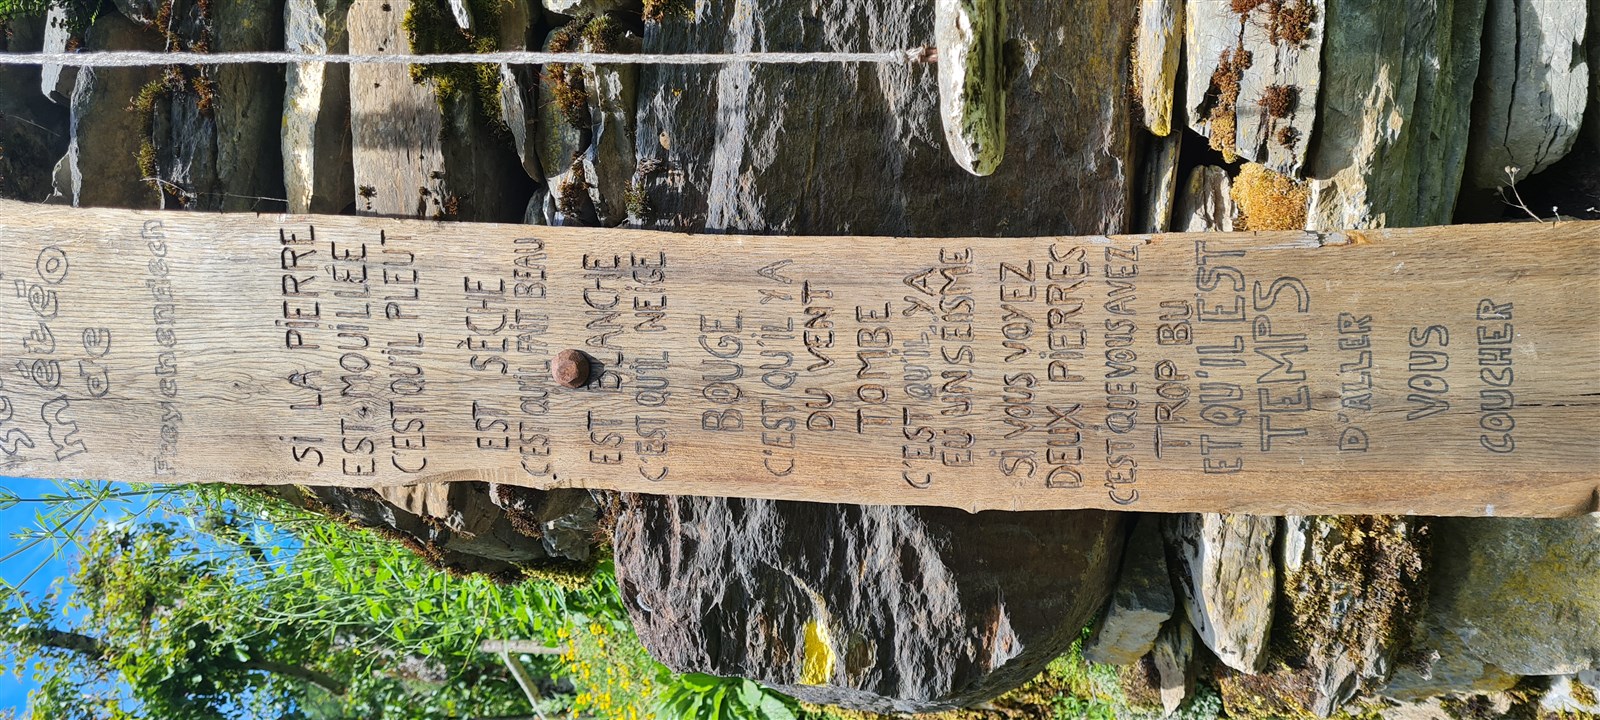 météo
de
SI LA PIERRE
EST MOUILLÉE
C'EST QU'IL PLEUT
EST SÈCHE
C'EST QU'IL FAIT BEAU
EST BLANCHE
C'EST QU'IL NEIGE
BOUGE
C'EST QU'IL Y A
DU VENT
TOMBE
C'EST QU'IL Y A
EU UN SEISME
SI VOUS VOYEZ
DEUX PIERRES
C'EST QUE VOUS AVEZ
TROP BU
ET QU'IL EST
TEMPS
D'ALLER
VOUS
COUCHER